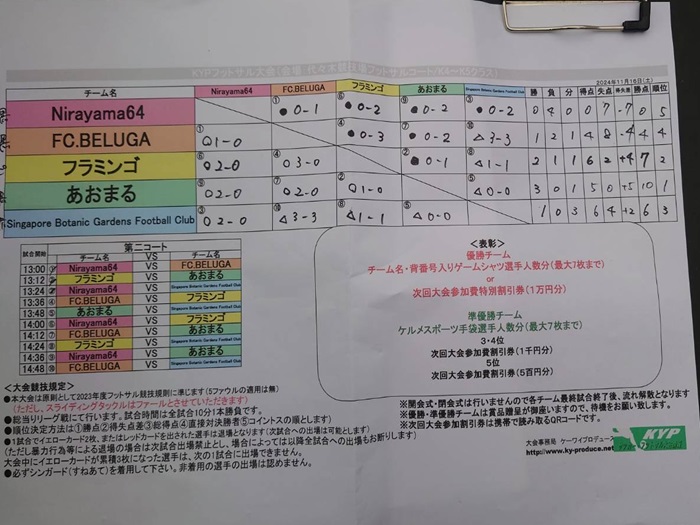 KYPフットサル大会(会場:代々木競技場フットサルコート/K4〜K5クラス)
2024年11月16日(土)
チーム名 Nirayama64 FC.BELUGA フラミンゴ あおまる Singapore Botanic Gardens Football Club 勝 負 分 得点 失点 得失差 勝点 順位
Nirayama64 ① ●0-1 ⑥ ●0-2 ⑨ ●0-2 ③ ●0-2 0 4 0 0 7 -7 0 5
FC.BELUGA ① 0 1-0 ④ ●0-3 ⑦ ●0-2 ⑩ △3-3 1 2 1 4 8 -4 4 4
フラミンゴ ⑥ 0 2-0 ④ 0 3-0 ② ●0-1 ⑧ △1-1 2 1 1 6 2 +4 7 2
あおまる ⑨ 0 2-0 ⑦ 0 2-0 ② 0 1-0 ⑤ △0-0 3 0 1 5 0 +5 10 1
Singapore Botanic Gardens Football Club ③ 0 2-0 ⑩ △3-3 ⑧ △1-1 ⑤ △0-0 1 0 3 6 4 +2 6 3
第二コート
試合開始 チーム名 VS チーム名
13:00 ① Nirayama64 VS FC.BELUGA
13:12 ② フラミンゴ VS あおまる
13:24 ③ Nirayama64 VS Singapore Botanic Gardens Football Club
13:36 ④ FC.BELUGA VS フラミンゴ
13:48 ⑤ あおまる VS Singapore Botanic Gardens Football Club
14:00 ⑥ Nirayama64 VS フラミンゴ
14:12 ⑦ FC.BELUGA VS あおまる
14:24 ⑧ フラミンゴ VS Singapore Botanic Gardens Football Club
14:36 ⑨ Nirayama64 VS あおまる
14:48 ⑩ FC.BELUGA VS Singapore Botanic Gardens Football Club
<表彰>
優勝チーム
チーム名・背番号入りゲームシャツ選手人数分(最大7枚まで)
or
次回大会参加費特別割引券(1万円分)
準優勝チーム
ケルメスポーツ手袋選手人数分(最大7枚まで)
3・4位
次回大会参加費割引券(1千円分)
5位
次回大会参加費割引券(5百円分)
<大会競技規定>
●本大会は原則として2023年度フットサル競技規則に準じます(5ファウルの適用は無)
(ただし、スライディングタックルはファールとさせていただきます)
●総当りリーグ戦にて行います。試合時間は全試合10分1本勝負です。
●順位決定方法は①勝点②得失点差③総得点④直接対決勝者⑤コイントスの順とします)
●1試合でイエローカード2枚、またはレッドカードを出された選手は退場となります(次試合への出場は可能とします)
(ただし暴力行為等による退場の場合は次試合出場禁止とし、場合によっては以降全試合への出場もお断りします)
大会中にイエローカードが累積3枚になった選手は、次の1試合に出場できません。
●必ずシンガード(すねあて)を着用して下さい。非着用の選手の出場は認めません。
※開会式・閉会式は行いませんので各チーム最終試合終了後、流れ解散となります
※優勝・準優勝チームは賞品贈呈が御座いますので、待機をお願い致します。
※次回大会参加費割引券は携帯で読み取るQRコードです。
大会事務局 ケーワイプロデュース
http://www.ky-produce.net
KYP